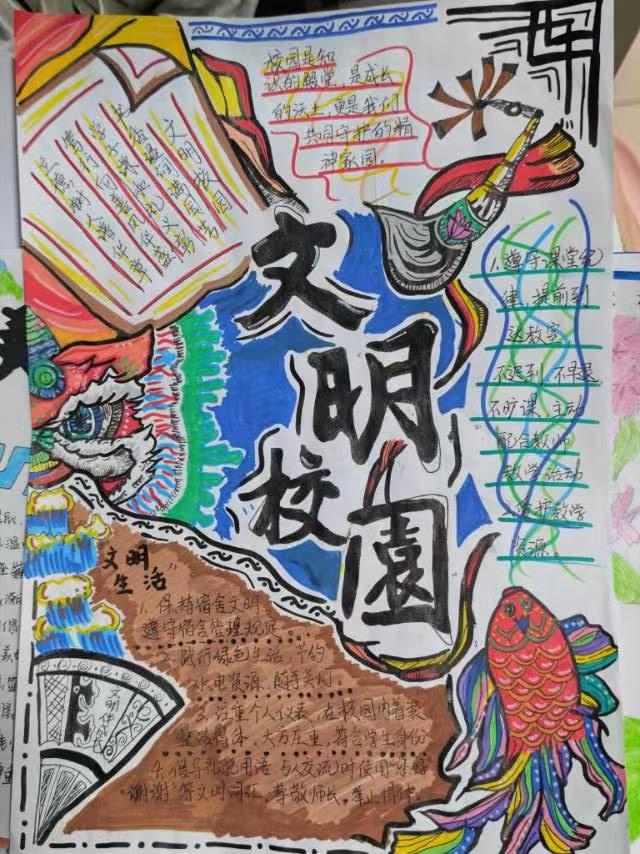 校园是知
识的殿堂,是成长
的沃土,更是我们
共同守护的精
神家园。
文明校园
文明
校園
1.遵守课堂纪
律,提前到
达教室
不迟到 不早退
不旷课,主动
配合教师
教学活动
2.爱护教学
资源。
文明
生活”
1.保持宿舍文明
遵守宿舍管理规定。
2.践行绿色生活,节约
水电资源,随手关灯
3.注重个人仪表,在校园内着装
整洁得体,大方庄重,符合学生身份
4.倡导礼貌用语,与人交流时使用“你好
“谢谢”等文明词汇,尊敬师长,举止得体。
文明伴